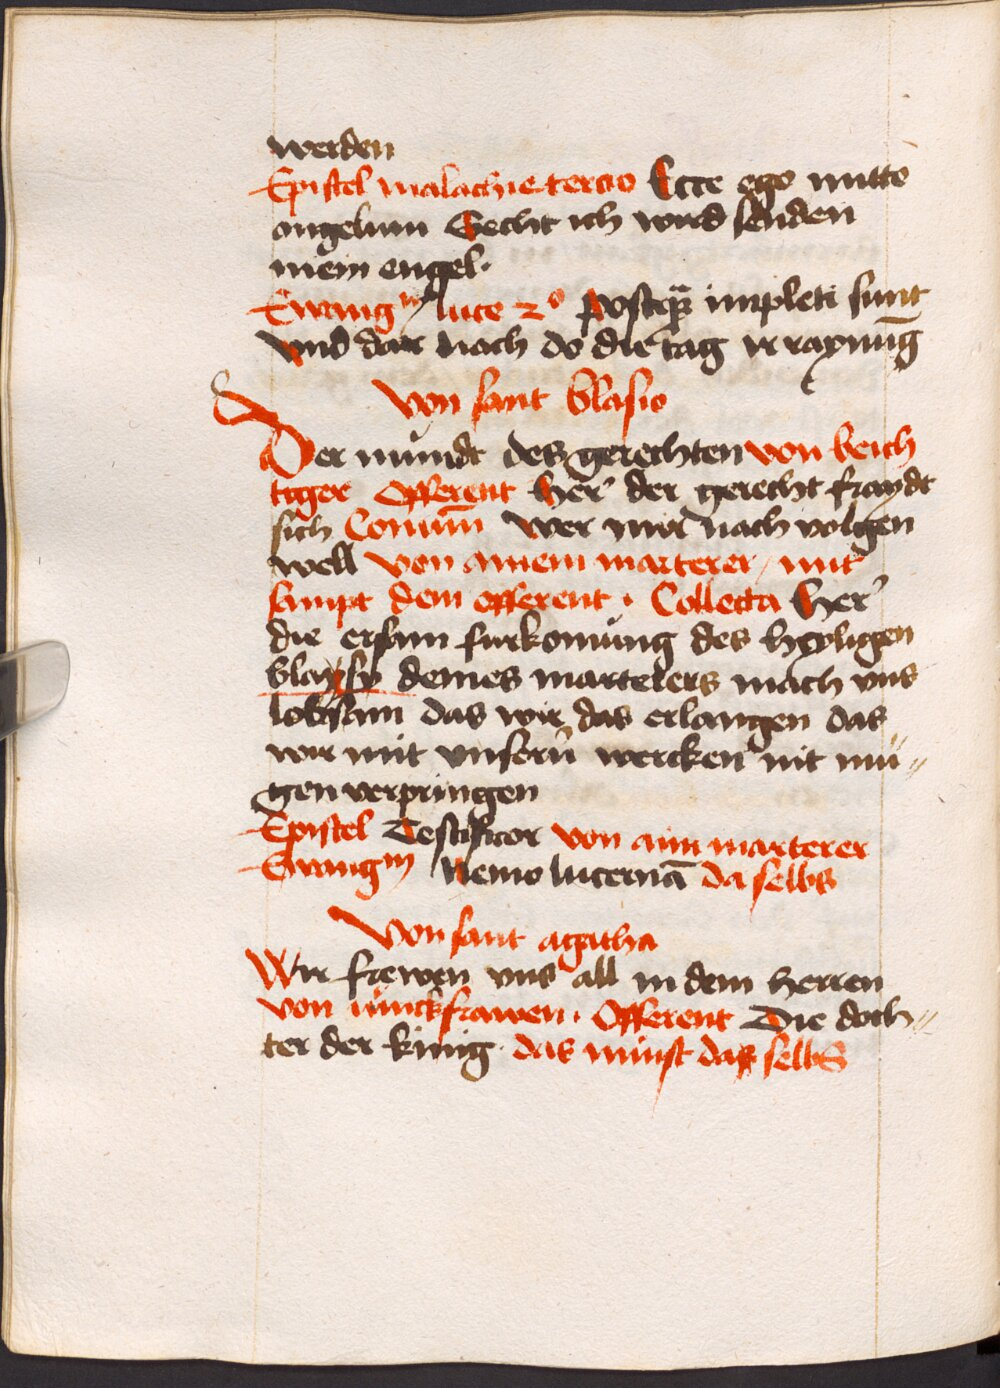 werden
Epistel malachie tercio Ecce ego mitto
angelum Secht ich wird senden
mein engel.
Ewangm luce 2o Postqȝ impleti sunt
vnd dar nach do die tag ir raynūg
Von sant blasio
Der mundt des gerechten von beich
tiger Offerent Her der gerecht fraydt
sich Comūn Wer mir nach volgen
well von ainem marterer / mit
sampt dem offerent . Collecta Her
die ersam furkomung des heyligen
blaysy deines martelers mach vns
lobsam das wir das erlangen das
wir mit vnserū wercken nit mü⸗
gen verpringen
Epistel Testificor von aim marterer
Ewangm Nemo lucernā da selbs
Von sant agatha
Wir frewen vns all in dem herren
von iunckfrawen . Offerent Die doch⸗
ter der king . das minst das selbs